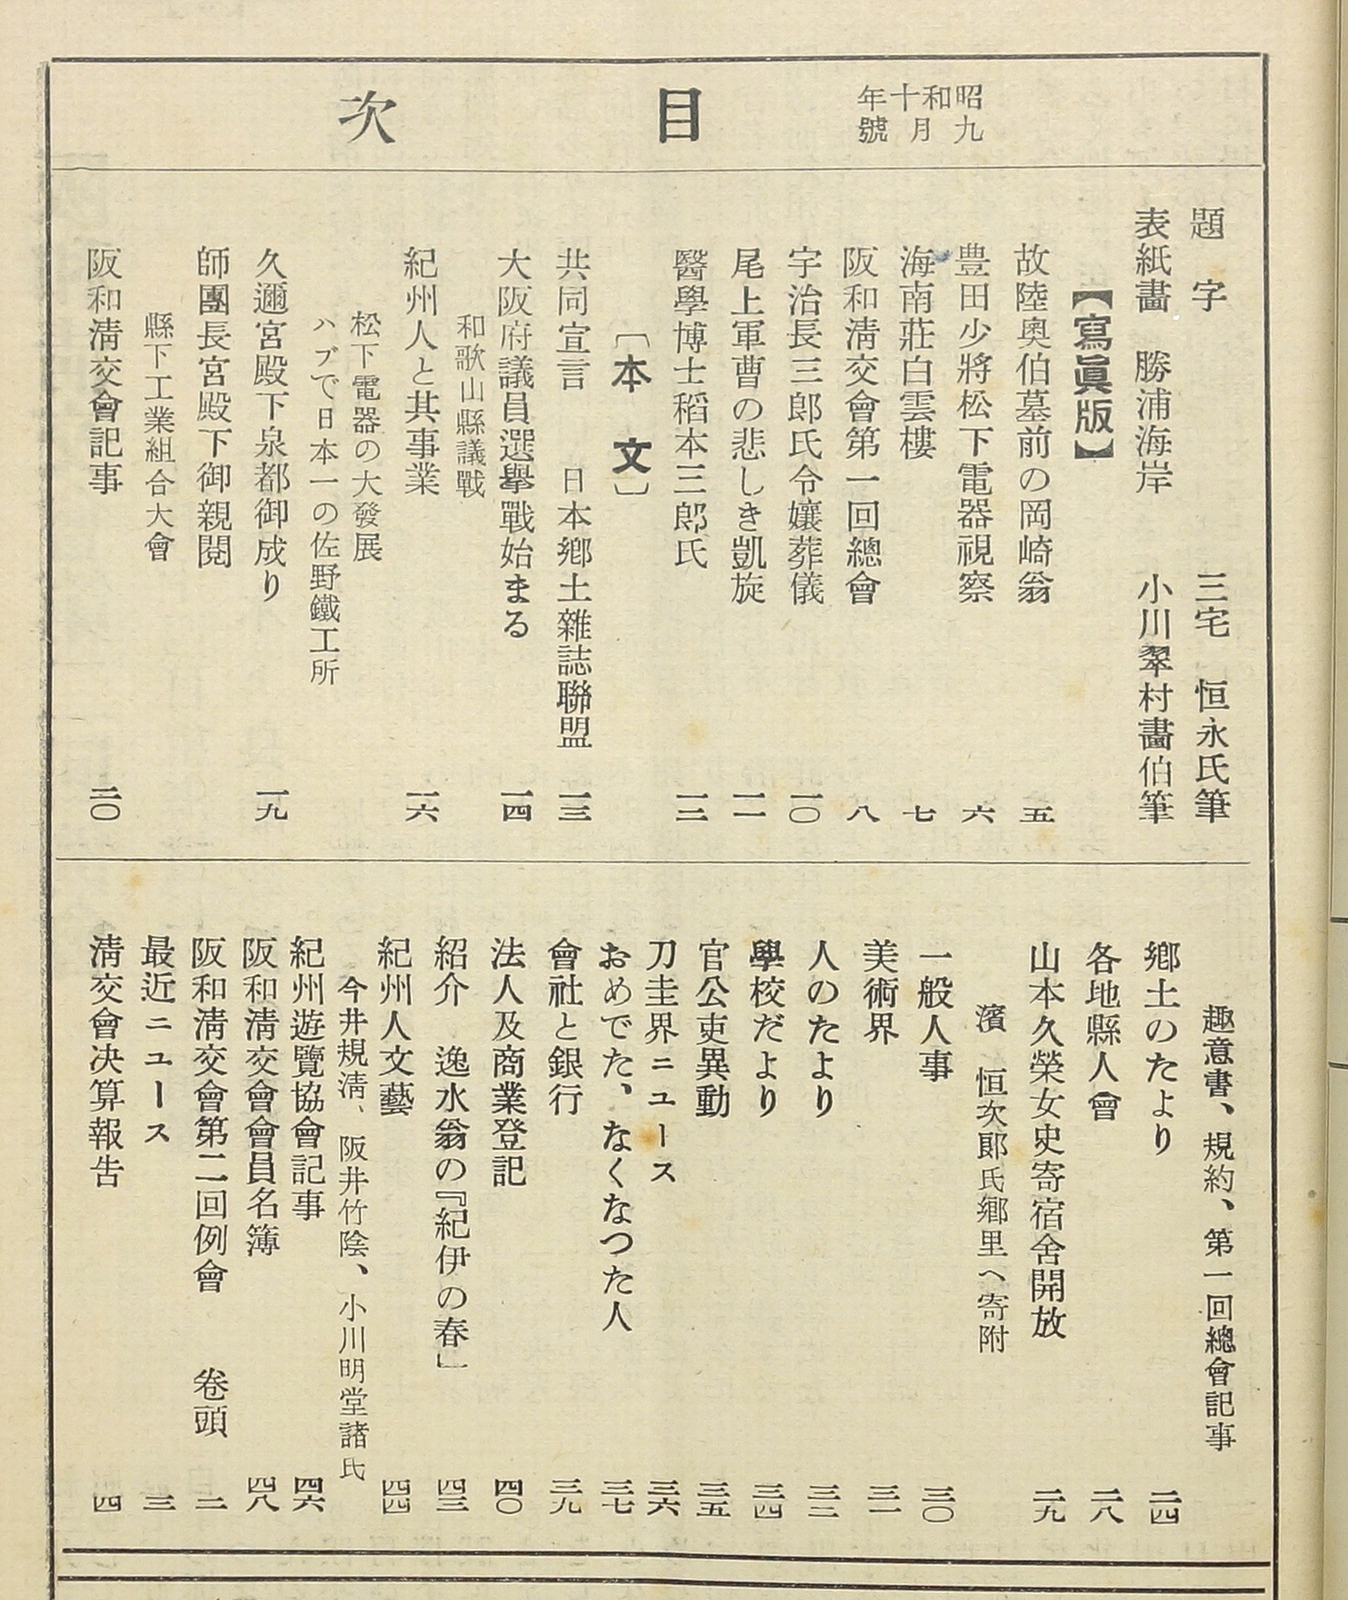 昭和十年
九月號
目次
題字 三宅恒永氏筆
表紙畫 勝浦海岸 小川翠村畵伯筆
【寫眞版】
故陸奥伯墓前の岡崎翁 五
豊田少將松下電器視察 六
海南莊白雲樓 七
阪和淸交會第一回總會 八
宇治長三郎氏令孃葬儀 一〇
尾上軍曹の悲しき凱旋 一一
醫學博士稻本三郎氏 一二
〔本文〕
共同宣言 日本鄕土雜誌聯盟 一三
大阪府議員選擧戰始まる 一四
和歌山縣議戰
紀州人と其事業 一六
松下電器の大發展
ハブで日本一の佐野鐵工所
久邇宮殿下泉都御成り 一九
師團長宮殿下御親閱
縣下工業組合大會
阪和淸交會記事 二〇
趣意書、規約、第一回總會記事
鄕土のたより 二四
各地縣人會 二八
山本久榮女史寄宿舍開放 二九
濱恒次郞氏鄕里へ寄附
一般人事 三〇
美術界 三一
人のたより 三二
學校だより 三四
官公吏異動 三五
刀圭界ニユース 三六
おめでた、なくなつた人 三七
會社と銀行 三九
法人及商業登記 四〇
紹介 逸水翁の『紀伊の春」 四三
紀州人文藝 四四
今井規淸、阪井竹陰、小川明堂諸氏
紀州遊覽協會記事 四六
阪和淸交會會員名簿 四八
阪和淸交會第二回例會 卷頭 二
最近ニュース 三
淸交會决算報告 四